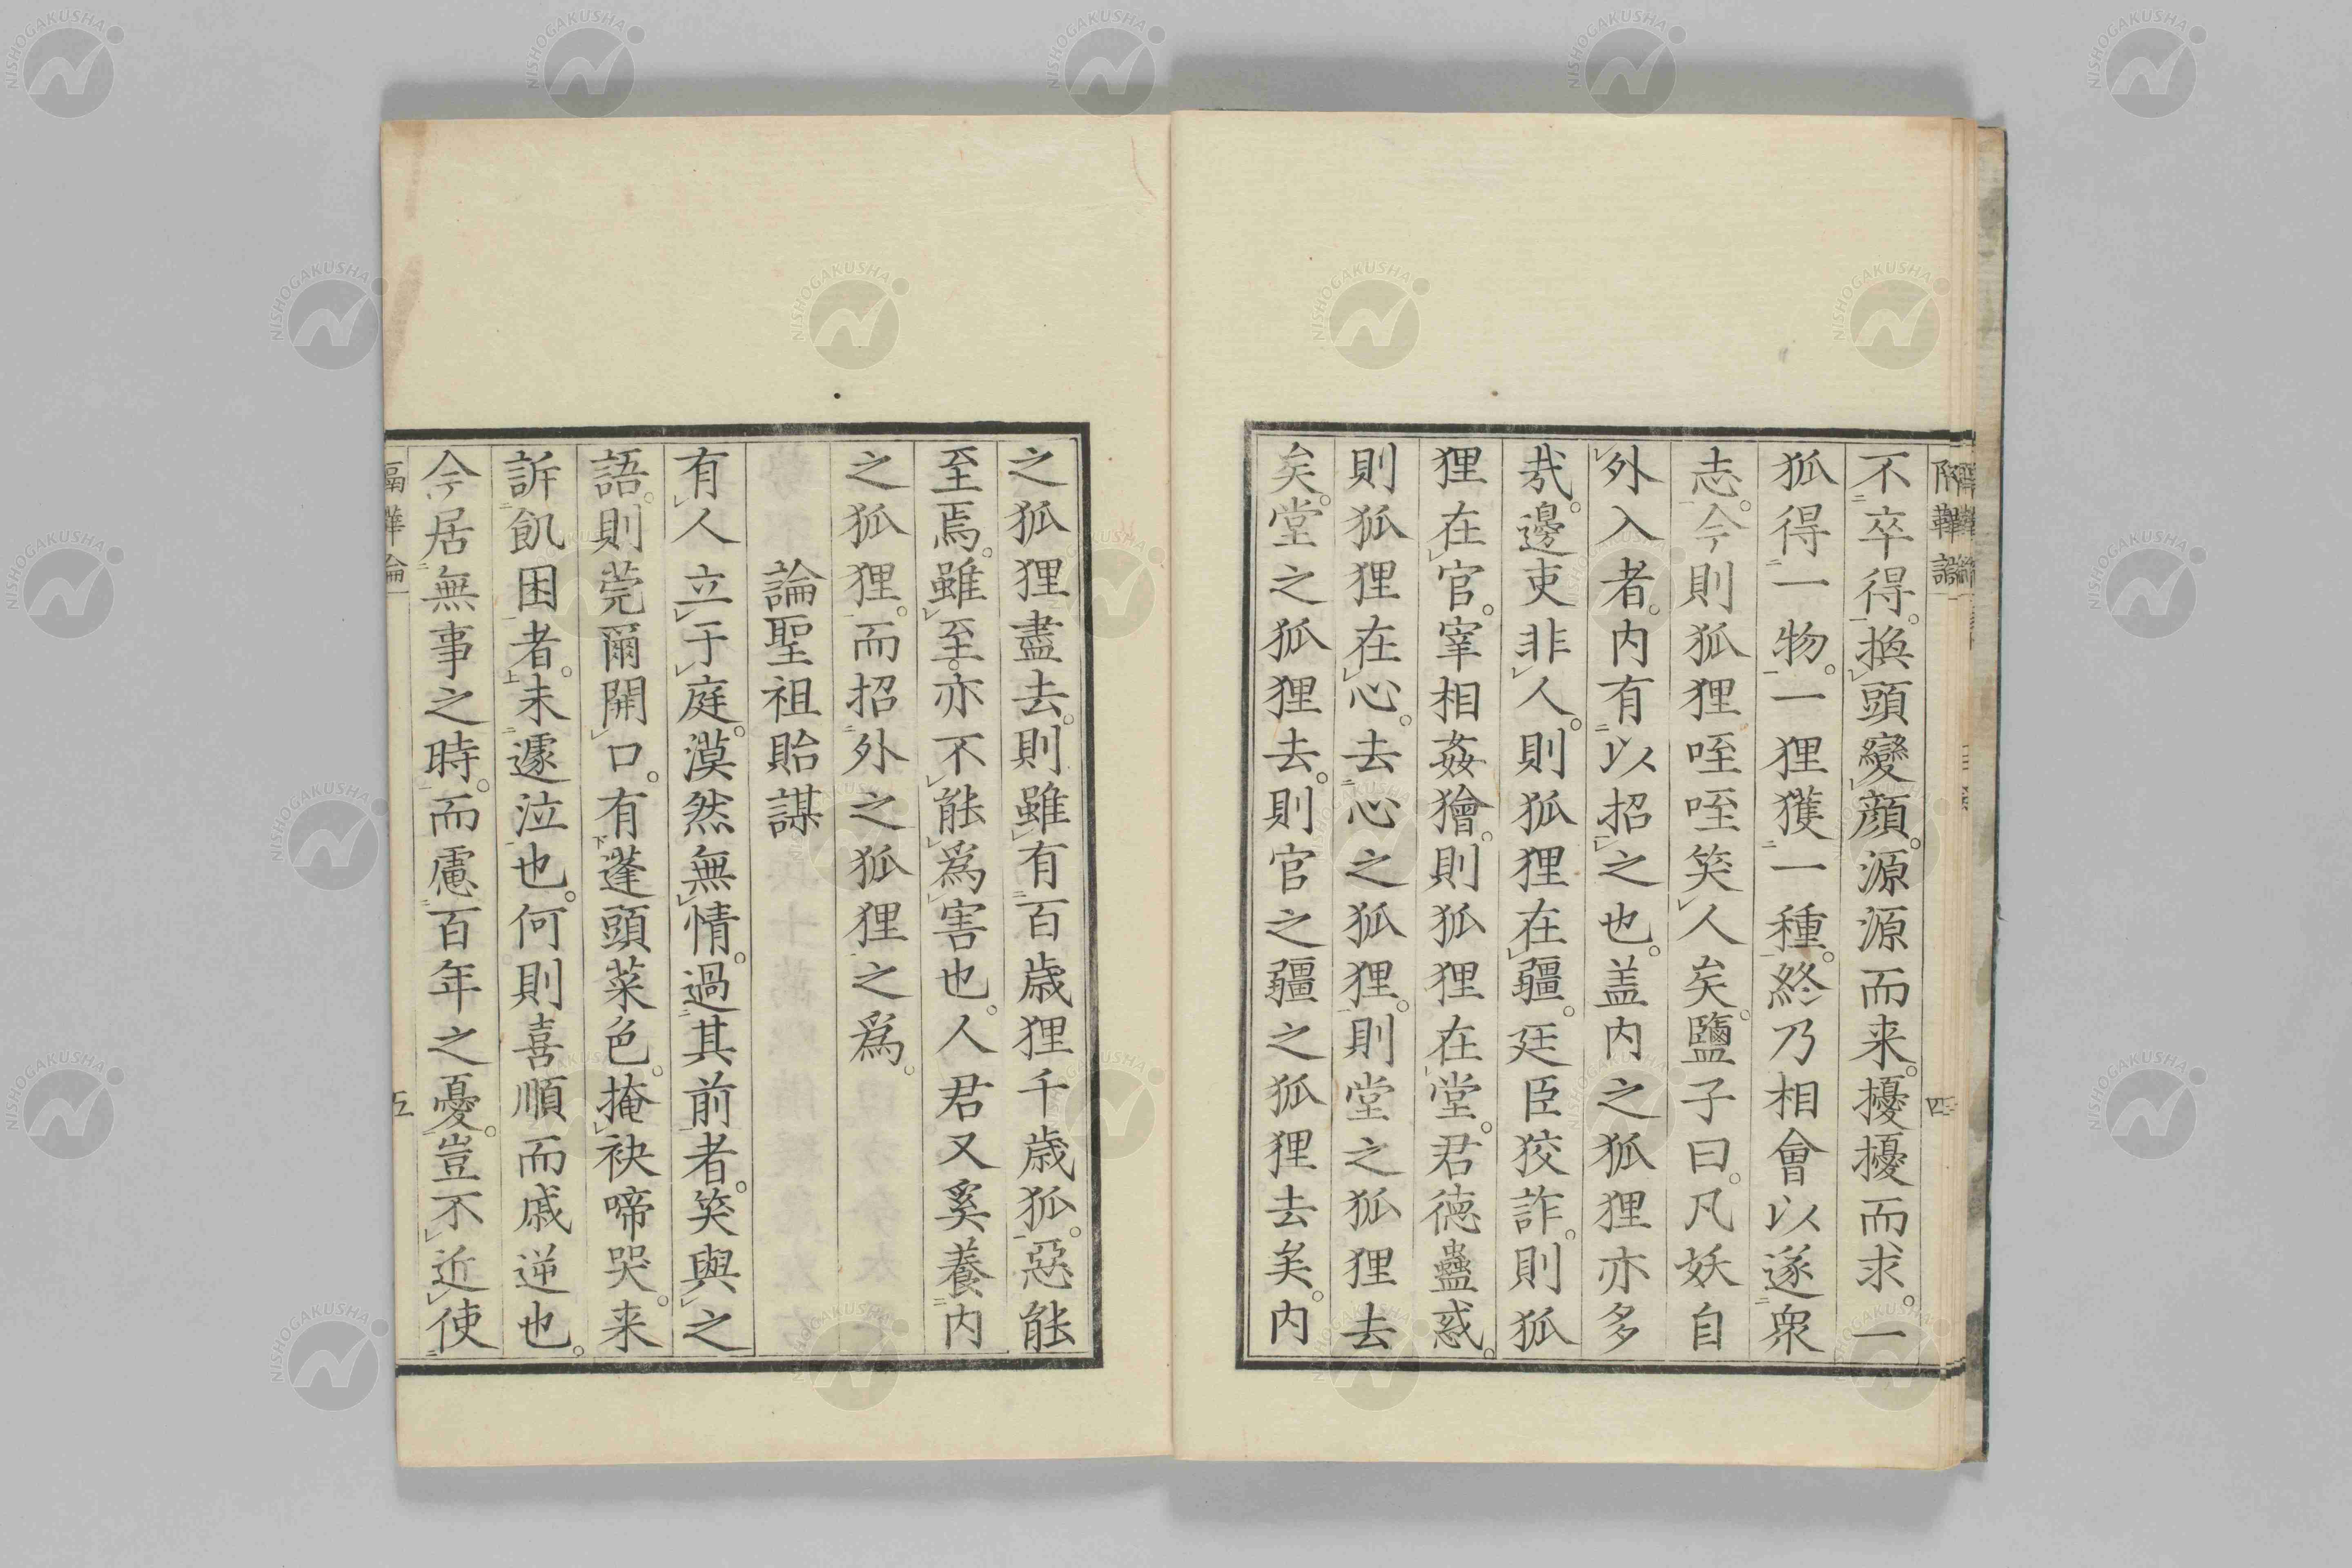 不卒得。換頭變顔。源源而来。擾擾而求。一
狐得一物。一狸獲一種。終乃相會以遂衆
志。今則狐狸咥咥笑人矣。鹽子曰。凡妖自
外入者。内有以招之也。盖内之狐狸亦多
哉。邊吏非人。則狐狸在疆。廷臣狡詐。則狐
狸在官。宰相姦獪。則狐狸在堂。君徳蠱惑。
則狐狸在心。去心之狐狸。則堂之狐狸去
矣。堂之狐狸去。則官之疆之狐狸去矣。内
之狐狸盡去。則雖有百歳狸千歳狐。惡能
至焉。雖至。亦不能爲害也。人君又奚養内
之狐狸。而招外之狐狸之爲。
論聖祖貽謀
有人立于庭。漠然無情。過其前者。笑與之
語。則莞爾開口。有蓬頭菜色。掩袂啼哭。来
訴飢困者。未遽泣也。何則喜順而戚逆也。
今居無事之時。而慮百年之憂。豈不近使
四
五
NISHOGAKUSHA